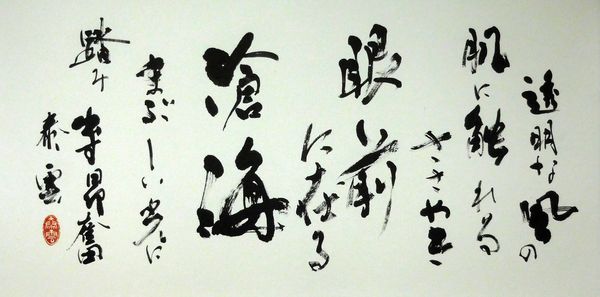 透明な風の
肌に触れる
ささやき
眼前
に在る
滄海
まぶしい光に
踏み
昂奮
泰雲